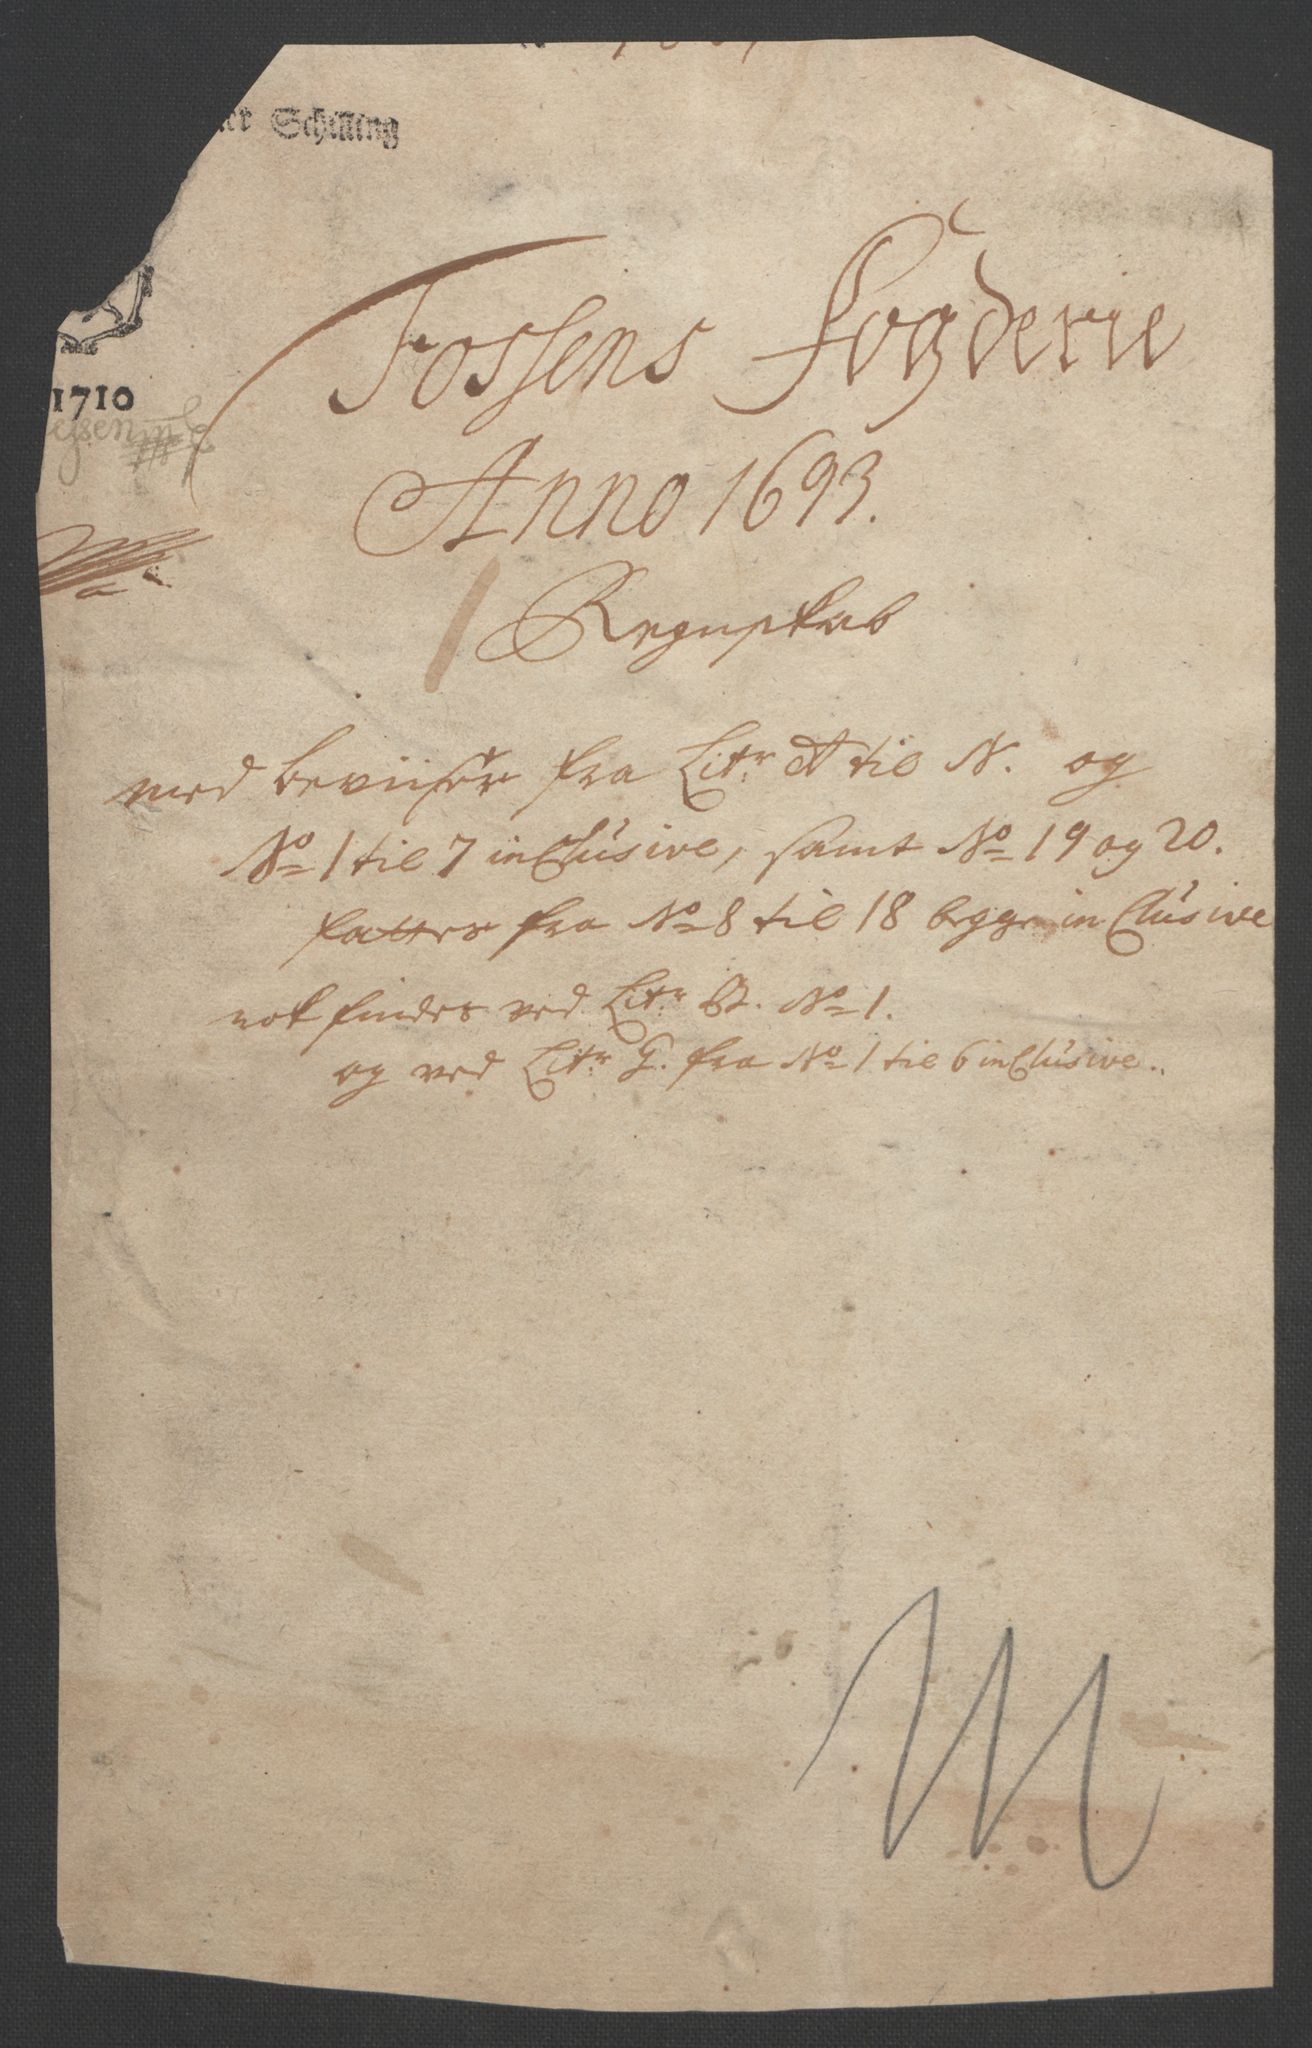 Schilling
Fossens Fogderie
1710
Anno 1693.
Regnskab
med beviiser fra Litr A til N. og
No 1 til 7 inclusive, samt No 19 og 20.
fattes fra No 8 til 18 begge inclusive
nok findes ved Litr B. No 1.
og ved Litr G. fra No 1 til 6 inclusive.